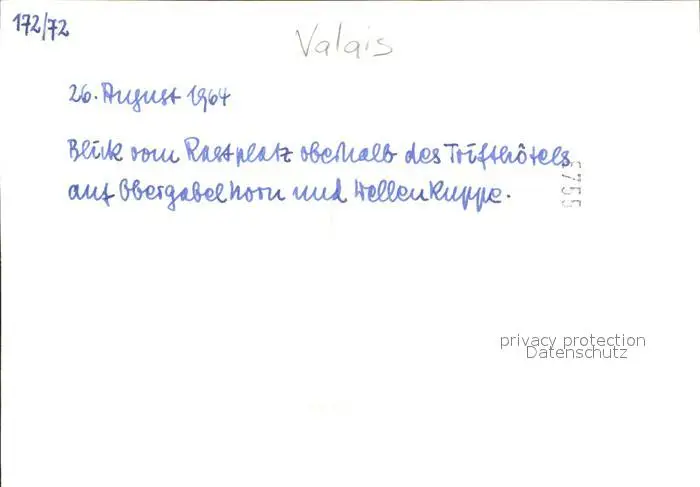 172/72
Valais
26. August 1964
Blick vom Rastplatz oberhalb des Trifthôtels
auf Obergabelhorn und Wellenkuppe.
5755
privacy protection
Datenschutz